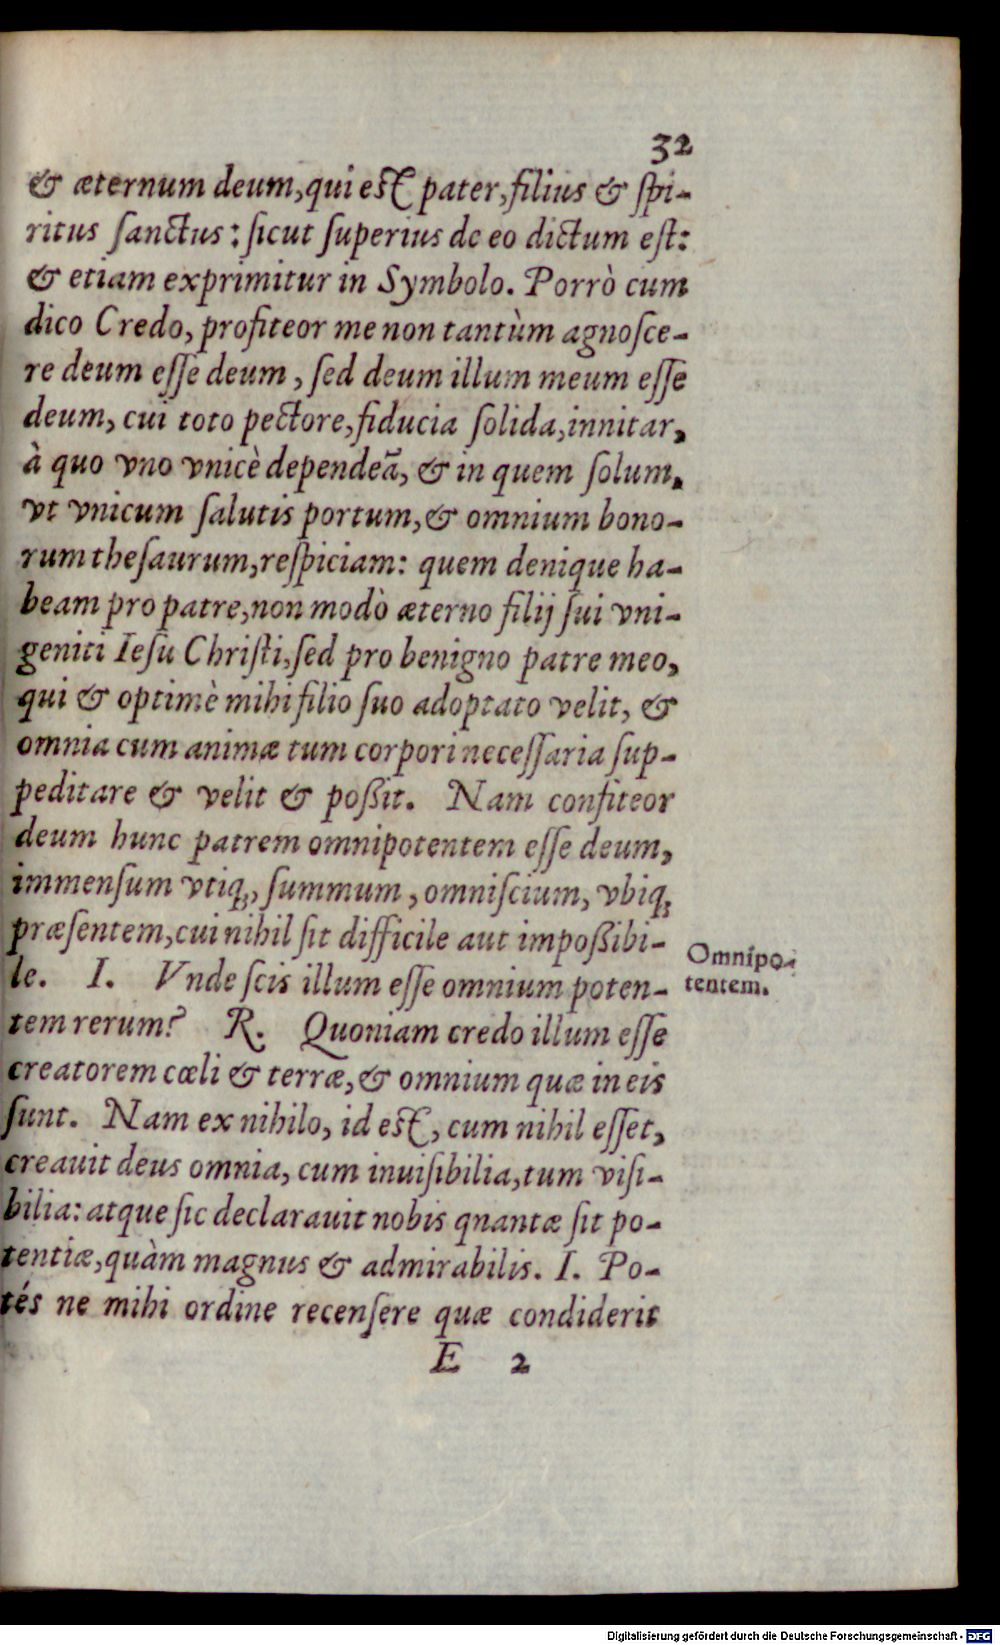 32
& æternum deum, qui est pater, filius & ſpi-
ritus ſanctus: ſicut ſuperius de eo dictum eſt:
& etiam exprimitur in Symbolo. Porrò cum
dico Credo, profiteor me non tantùm agnoſce-
re deum eſſe deum, ſed deum illum meum eſſe
deum, cui toto pectore, fiducia ſolida, innitar,
à quo vno vnicè dependeã, & in quem ſolum,
vt vnicum ſalutis portum, & omnium bono-
rum theſaurum, reſpiciam: quem denique ha-
beam pro patre, non modò æterno filij ſui vni-
geniti Ieſu Chriſti, ſed pro benigno patre meo,
qui & optimè mihi filio ſuo adoptato velit, &
omnia cum animæ tum corpori neceſſaria ſup-
peditare & velit & poßit. Nam confiteor
deum hunc patrem omnipotentem eſſe deum,
immenſum vtiq;, ſummum, omniſcium, vbiq;
præſentem, cui nihil ſit difficile aut impoßibi-
le. I. Vnde ſcis illum eſſe omnium poten-
tem rerum? R. Quoniam credo illum eſſe
creatorem cœli & terræ, & omnium quæ in eis
ſunt. Nam ex nihilo, id est, cum nihil eſſet,
creauit deus omnia, cum inuiſibilia, tum viſi-
bilia: atque ſic declarauit nobis qnantæ ſit po-
tentiæ, quàm magnus & admirabilis. I. Po-
tés ne mihi ordine recenſere quæ condiderit
E 2
Omnipo-
tentem.
Digitalisierung gefördert durch die Deutsche Forschungsgemeinschaft - DFG